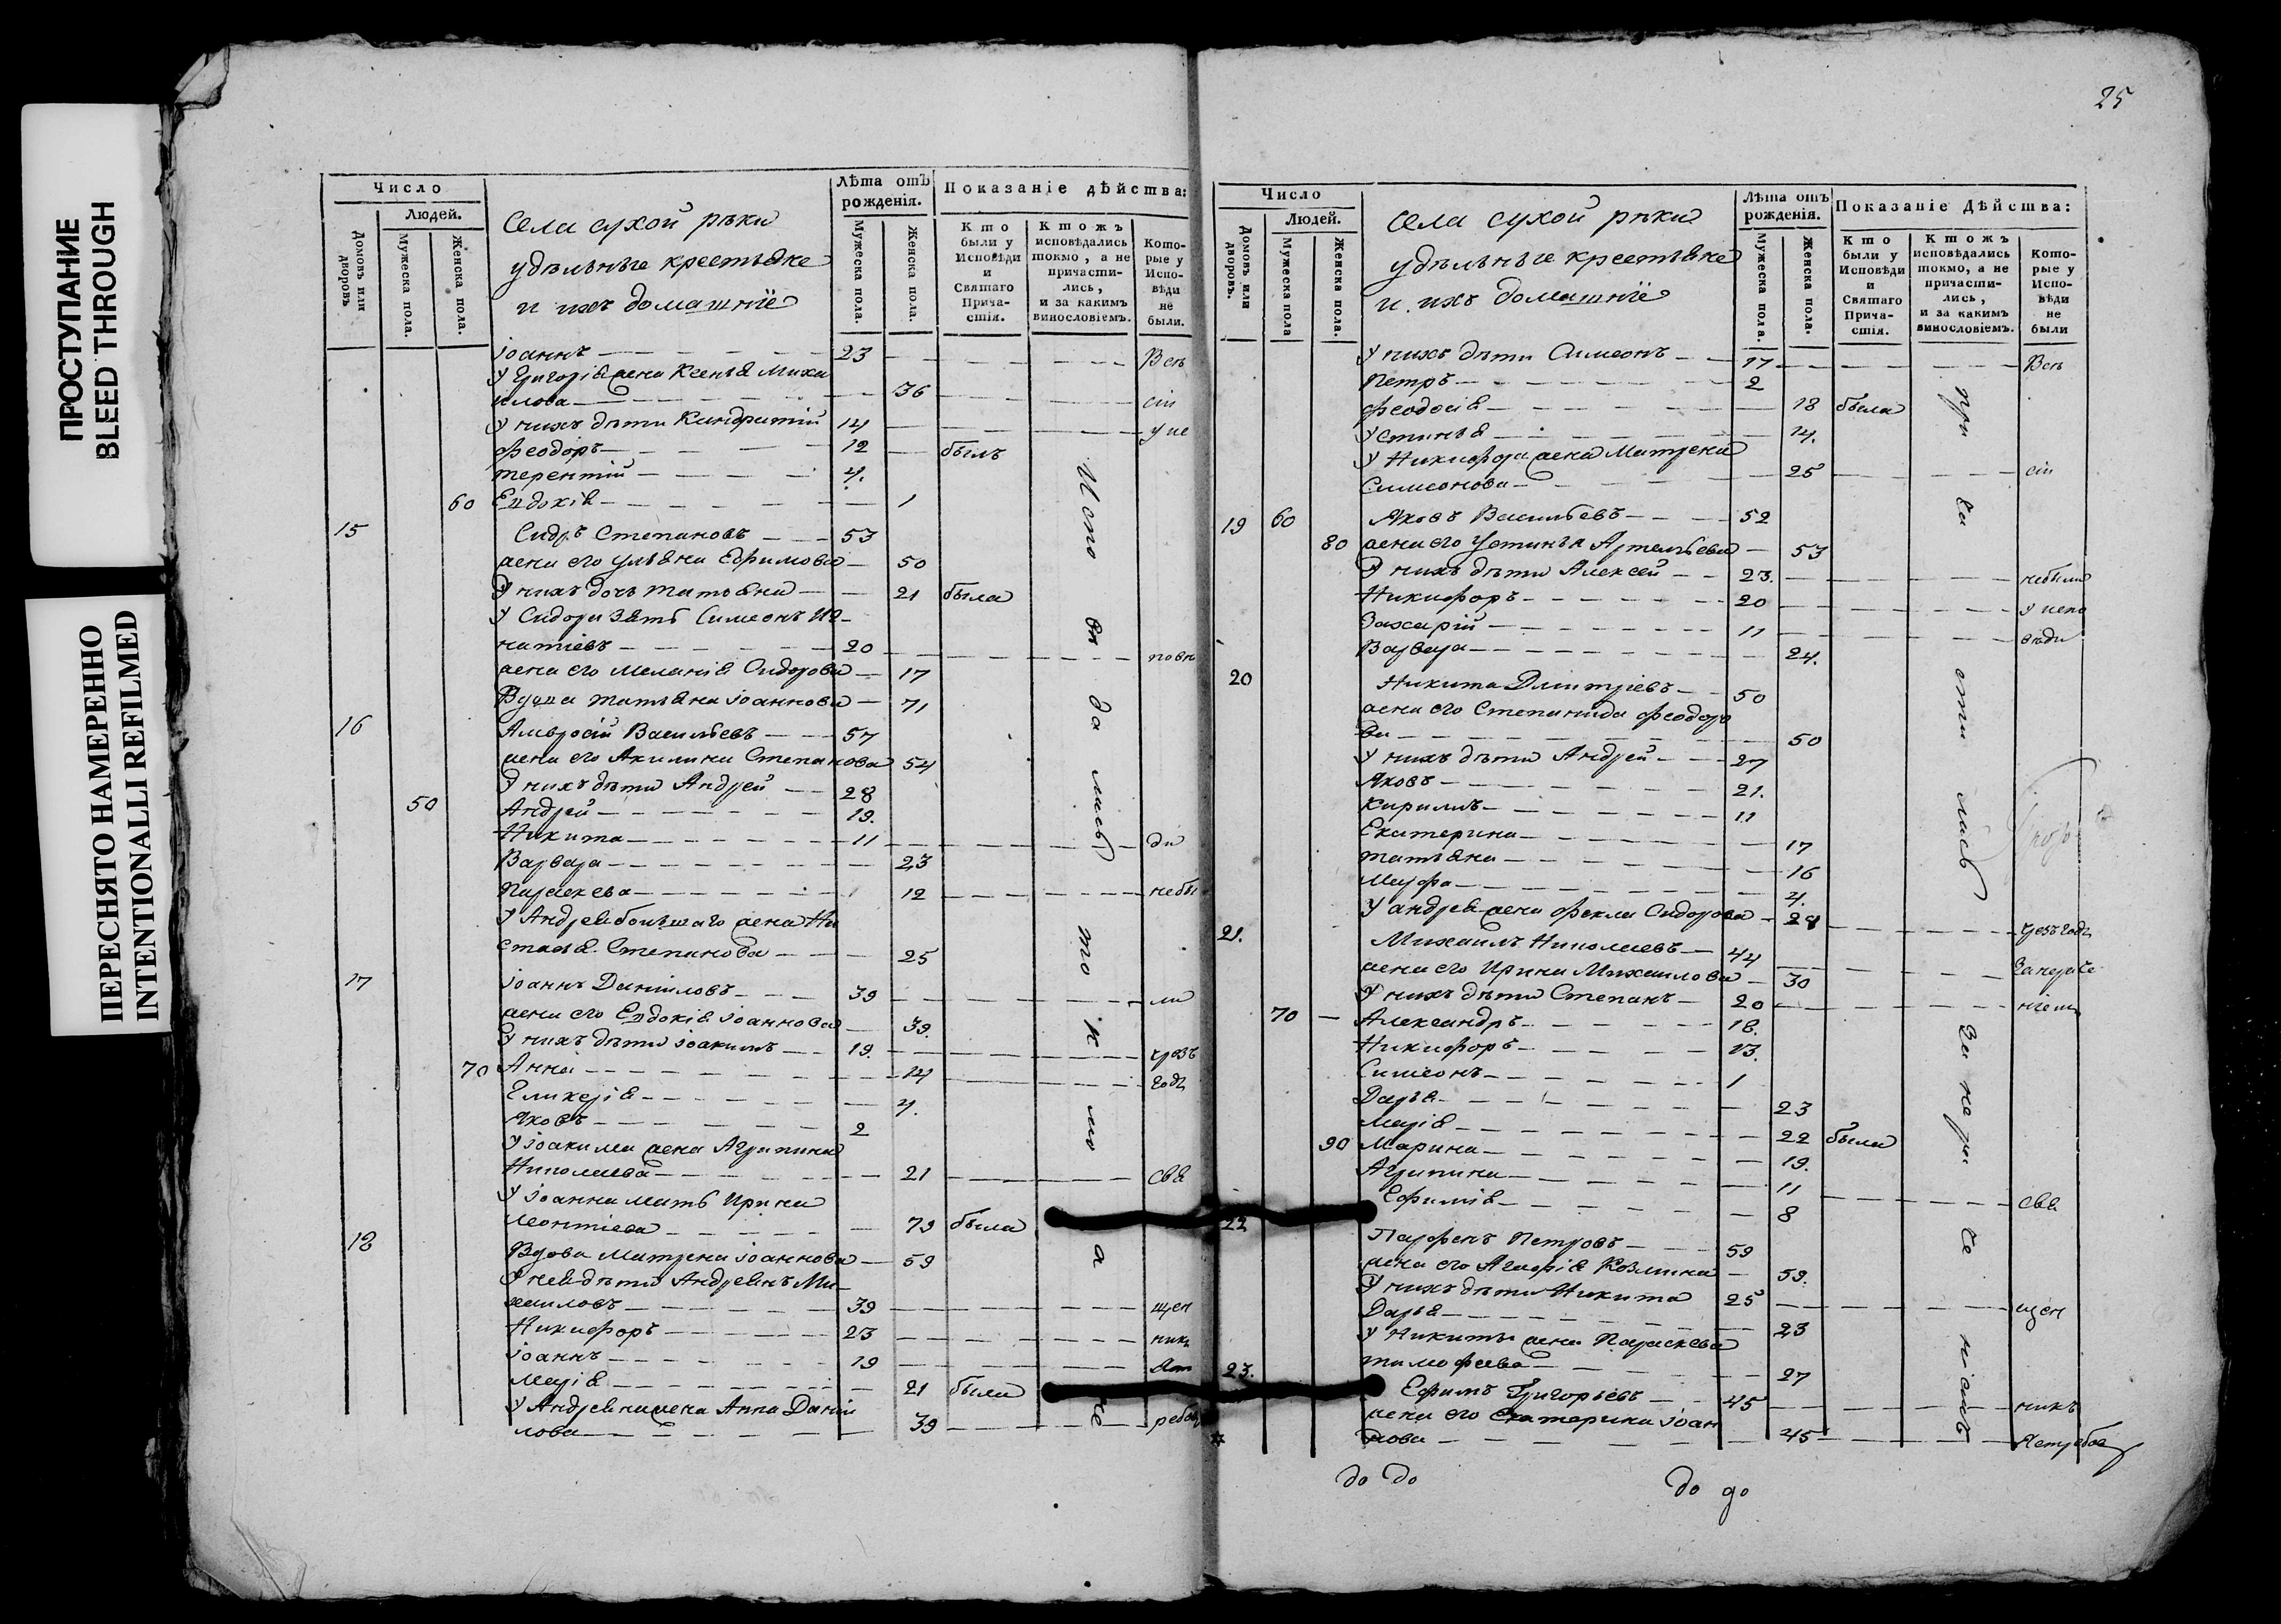 ПРОСТУПАНИЕ
BLEED THROUGH
ПЕРЕСНЯТО НАМЕРЕННО
INTENTIONALLI REFILMED
Число
Людей.
Домовъ или дворовъ
Мужеска пола.
Женска пола.
Села сухой рѣки
удѣльные крестьяне
и ихъ домашніе
Лѣта отъ рожденія.
Мужеска пола.
Женска пола.
Показаніе дѣйства:
Кто были у Исповѣди и Святаго Прича-стія.
Ктожъ исповѣдались токмо, а не причасти-лись, и за какимъ винословіемъ.
Кото-рые у Испо-вѣди не были.
іоаннъ 23 Всѣ
У Григорія жена Ксенія Миха
илова 36 сіи
У нихъ дѣти Кандратій 14 у ис
феодоръ 12 былъ
терентій 4.
60 Евдокія 1
15 Сидръ Степановъ 53
жена его Ульяна Ефимова 50
У нихъ дочь татьяна 21 была
У Сидора зять Симеонъ Иг-
натіевъ 20
жена его Меланія Сидорова 17 повѣ
Вдова татьяна іоаннова 71
16 Амвросій Васильевъ 57
жена его Акилина Степанова 54
У нихъ дѣти Андрей 28
50 Андрей 19.
Никита 11 ди
Варвара 23
Параскева 12 небы
У Андрея большаго жена На
стасья Степанова 25
17 іоаннъ Даниловъ 39 ли
жена его Евдокія іоаннова 39.
У нихъ дѣти іоакимъ 19. чрезъ
70 Анна 14 годъ
Гликерія 4.
Яковъ 2
У іоакима жена Агрипина
Николаева 21 свя
У іоанна мать Ирина
Леонтіева 79 была
18 Вдова Матрена іоаннова 59
У нея дѣти Андреянъ Ми
хаиловъ 39 щен
Никифоръ 23 никъ
іоаннъ 19 Яст
Марія 21 была
У Андреяна жена Анна Дании
лова 39 ребов
Исповѣдались токмо а не
25
Число
Людей.
Домовъ или дворовъ.
Мужеска пола
Женска пола.
Села сухой рѣки
удѣльные крестьяне
и ихъ домашніе
Лѣта отъ рожденія.
Мужеска пола.
Женска пола.
Показаніе Дѣйства:
Кто были у Исповѣди и Святаго Прича-стія.
Ктожъ исповѣдались токмо, а не причасти-лись, и за какимъ винословіемъ.
Кото-рые у Испо-вѣди не были
У нихъ дѣти Симеонъ 17 Всѣ
Петръ 2
феодосія 18 была
Устинья 14.
У Никифора жена Матрена
Симеонова 25 сіи
19 60 Яковъ Васильевъ 52
80 жена его Устинья Артемьева 53
У нихъ дѣти Алексей 23. небыли
Никифоръ 20 у испо
Захарій 11 вѣди
Варвара 24.
20 Никита Дмитріевъ 50
жена его Степанида феодоро
ва 50
У нихъ дѣти Андрей 27
Яковъ 21.
Кирилъ 11
Екатерина 17
татьяна 16
Марфа 4.
У андрея жена фекла Сидорова 28 чрезъ годъ
21. Михаилъ Николаевъ 44
жена его Ирина Михаилова 30 занераче
У нихъ дѣти Степанъ 20 ніемъ
70 Александръ 18.
Никифоръ 13.
Симеонъ 1
Дарья 23
Марія 22 были
90 Марина 19.
Агрипина 11
Ефимія 8 свя
22 Парфенъ Петровъ 59
жена его Агафія Козмина 59.
У нихъ дѣти Никита 25 щен
Дарья 23
У Никиты жена Параскева
тимофеева 27
23. Ефимъ Григорьевъ 45 никъ
жена его Екатерина іоан
нова 45 Ястребов
причастились занераченіемъ
до до до до